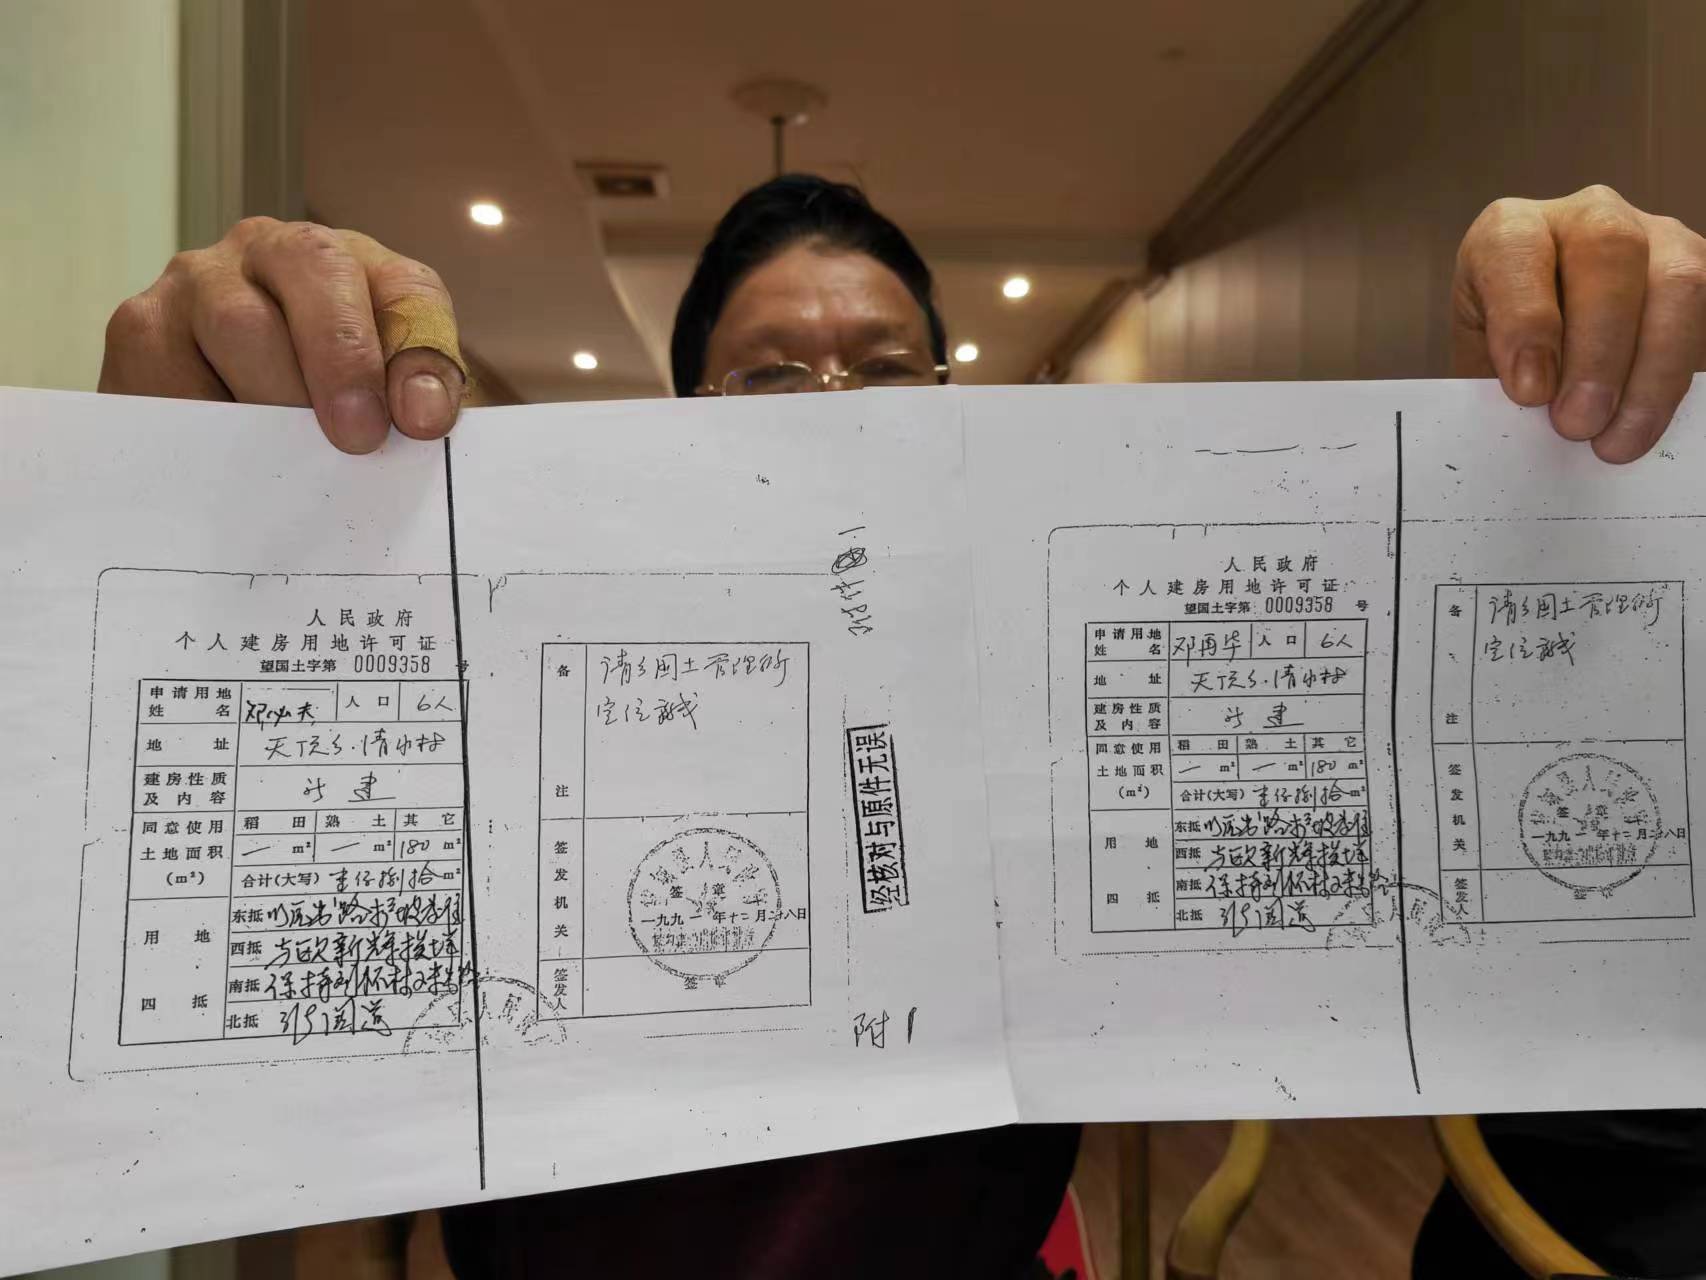 人民政府
个人建房用地许可证
望国土字第 0009358 号
申请用地姓名 邓必夫 人口 6人
地址 天顶乡.清水村
建房性质及内容 新建
同意使用土地面积(m²) 稻田 熟土 其它
一 m² 一 m² 180 m²
合计(大写) 壹佰捌拾 m²
用地四抵
东抵
西抵 与欧新辉
南抵
北抵
备注 请乡国土管理所
定位
签发机关 签章
一九九一年十二月二十八日
签发人 签章
经核对与原件无误
附1
人民政府
个人建房用地许可证
望国土字第 0009358 号
申请用地姓名 邓再华 人口 6人
地址 天顶乡.清水村
建房性质及内容 新建
同意使用土地面积(m²) 稻田 熟土 其它
一 m² 一 m² 180 m²
合计(大写) 壹佰捌拾 m²
用地四抵
东抵
西抵 与欧新辉
南抵
北抵
备注 请乡国土管理所
定位
签发机关 签章
一九九一年十二月二十八日
签发人 签